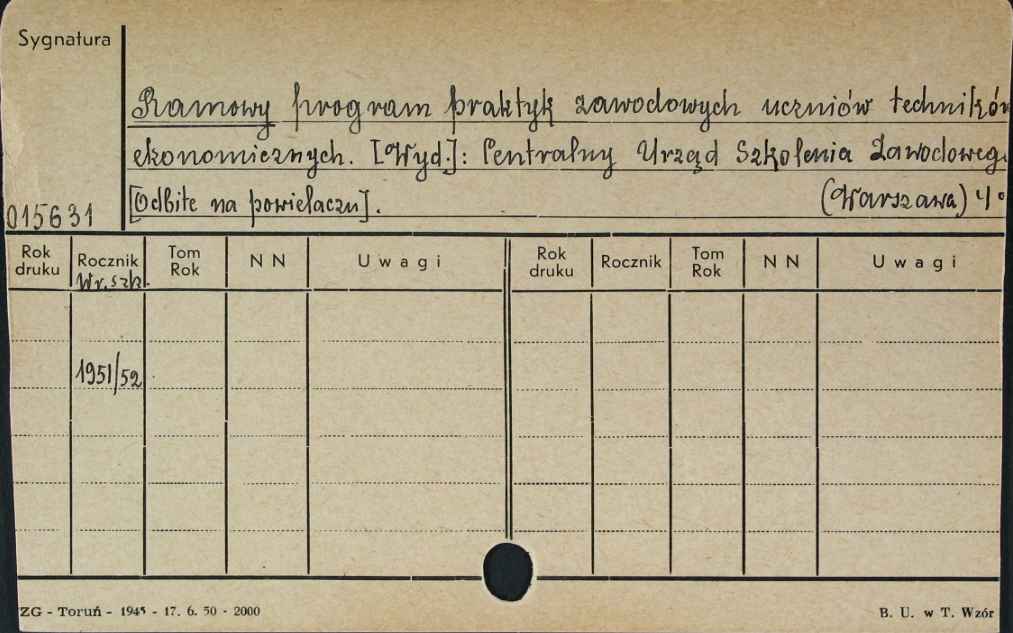 Sygnatura
Ramowy program praktyk zawodowych uczniów techników
ekonomicznych. [Wyd.]: Centralny Urząd Szkolenia Zawodoweg.
[Odbite na powielaczu]. (Warszawa) 4°
015631
Rok druku Rocznik Tom Rok N N Uwagi Rok druku Rocznik Tom Rok N N Uwagi
Wr. szk.
1951/52
ZG - Toruń - 1945 - 17. 6. 50 - 2000 B. U. w T. Wzór